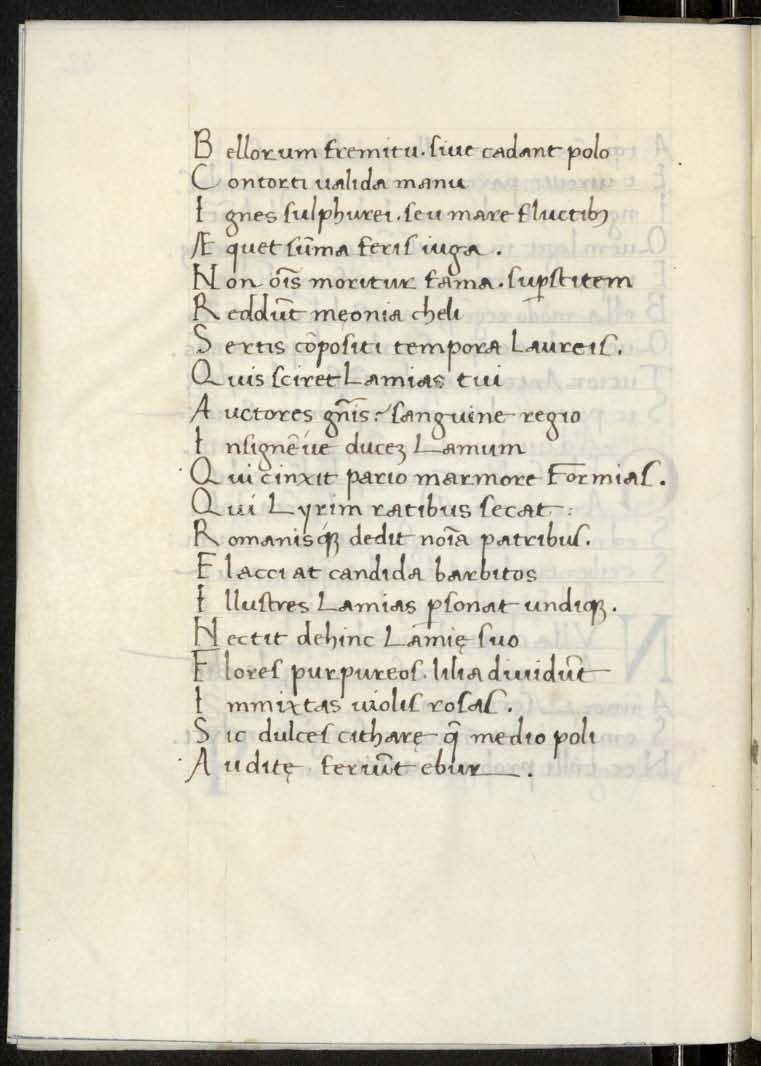 Bellorum fremitu. siue cadant polo
Contorti ualida manu
Ignes sulphurei. seu mare fluctibꝫ
Æquet sūma feris iuga.
Non oīs moritur fama. suꝑstitem
Reddūt meonia cheli
Sertis cōpositi tempora Laureis.
Quis sciret Lamias tui
Auctores gn̄is: sanguine regio
Insignē ue ducez Lamum
Qui cinxit pario marmore Formias.
Qui Lyrim ratibus secat:
Romanisqꝫ dedit noīa patribus.
Flacci at candida barbitos
Illustres Lamias ꝑsonat undiqꝫ.
Nectit dehinc Lamię suo
Flores purpureos. lilia diuidūt
Immixtas uiolis rosas.
Sic dulces citharę q̄ medio poli
Auditę feriūt ebur.